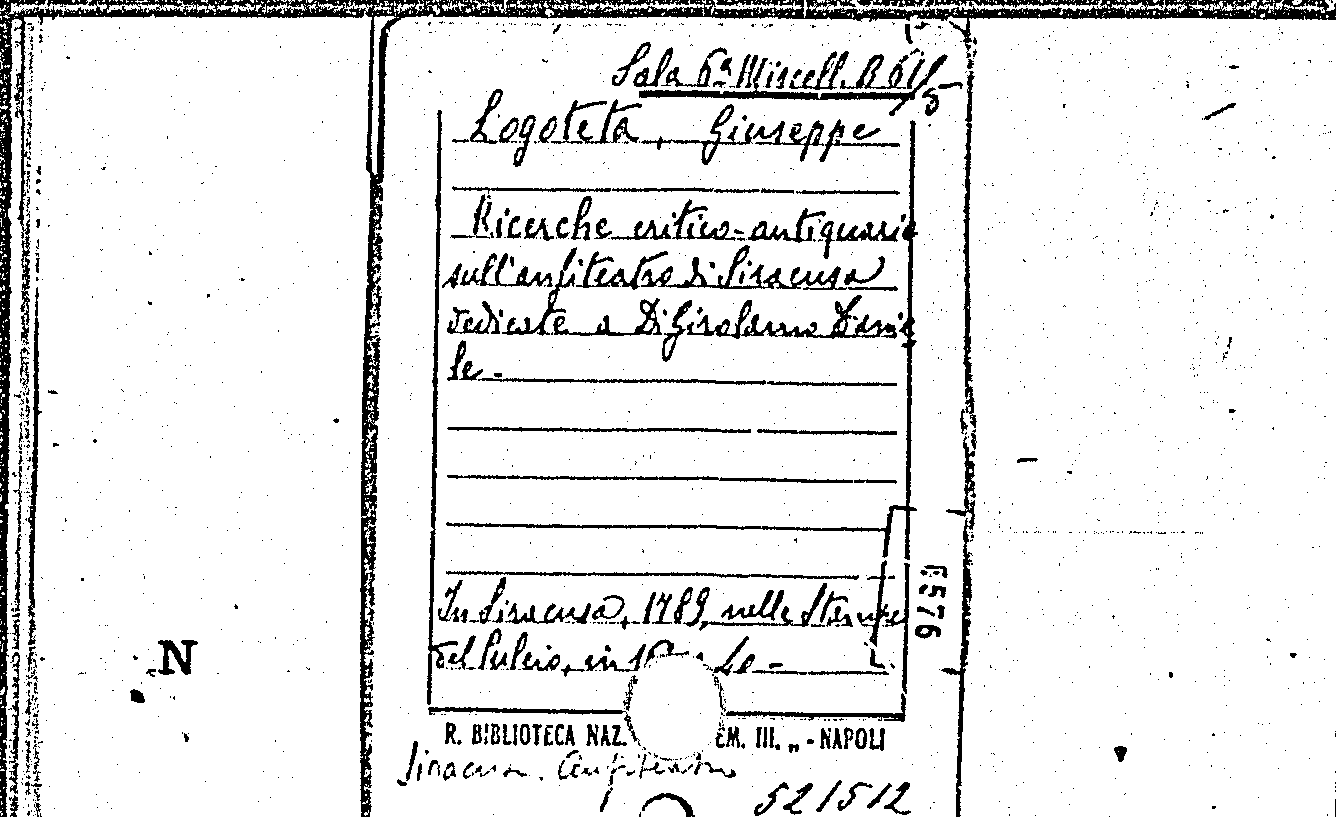 Sala 6ª Miscell. B 61/5
Logoteta, Giuseppe
Ricerche critico-antiquarie
sull'anfiteatro di Siracusa
dedicate a Di Girolamo Danie
le-
In Siracusa, 1789, nelle Stampe
del Puleio, in
R. BIBLIOTECA NAZ. EM. III. „ - NAPOLI
Siracusa. Anfiteatro
521512
6576
N